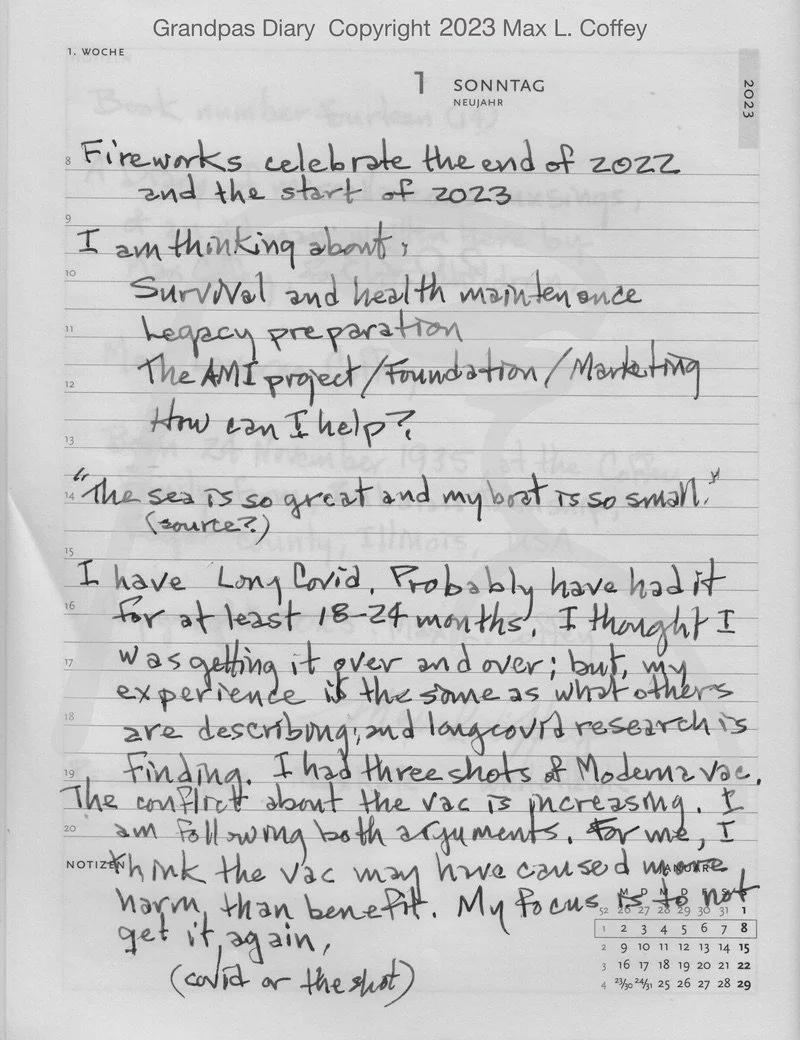 Grandpas Diary Copyright 2023 Max L. Coffey
1. WOCHE
1 SONNTAG
NEUJAHR
2023
8 Fireworks celebrate the end of 2022
and the start of 2023
9
I am thinking about;
10 Survival and health maintenance
11 Legacy preparation
The AMI project/Foundation/Marketing
12
How can I help?
13
14 "The sea is so great and my boat is so small."
(source?)
15
I have Long Covid. Probably have had it
16 for at least 18-24 months. I thought I
17 was getting it over and over; but, my
experience is the same as what others
18 are describing; and long covid research is
19 finding. I had three shots of Moderna vac.
The conflict about the vac is increasing. I
20 am following both arguments. For me, I
NOTIZEN think the vac may have caused more
JANUAR
harm, than benefit. My focus is to not
M D M D F S S
52 26 27 28 29 30 31 1
get it, again,
1 2 3 4 5 6 7 8
2 9 10 11 12 13 14 15
(covid or the shot)
3 16 17 18 19 20 21 22
4 23/30 24/31 25 26 27 28 29
Book number fourteen (14)
Born 24 November 1935, at the Coffey
County, Illinois, USA